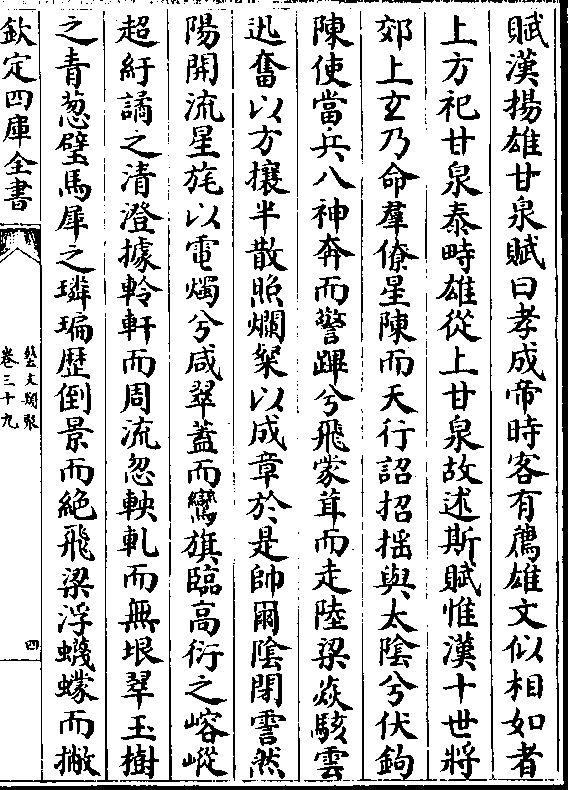 賦漢揚雄甘泉賦曰孝成帝時客有薦雄文似相如者
上方祀甘泉泰畤雄從上甘泉故述斯賦惟漢十世將
郊上玄乃命羣僚星陳而天行詔招揺與太陰兮伏鉤
陳使當兵八神奔而警蹕兮飛蒙茸而走陸梁猋駭雲
迅奮以方攘半散照爛粲以成章於是帥爾陰閉霅然
陽開流星旄以電燭兮咸翠蓋而鸞旗臨高衍之嵱嵷
超紆譎之清澄據軨軒而周流忽軮軋而無垠翠玉樹
之青葱璧馬犀之璘㻞歴倒景而絶飛梁浮蠛蠓而撇
欽定四庫全書
藝文類聚
卷三十九
四